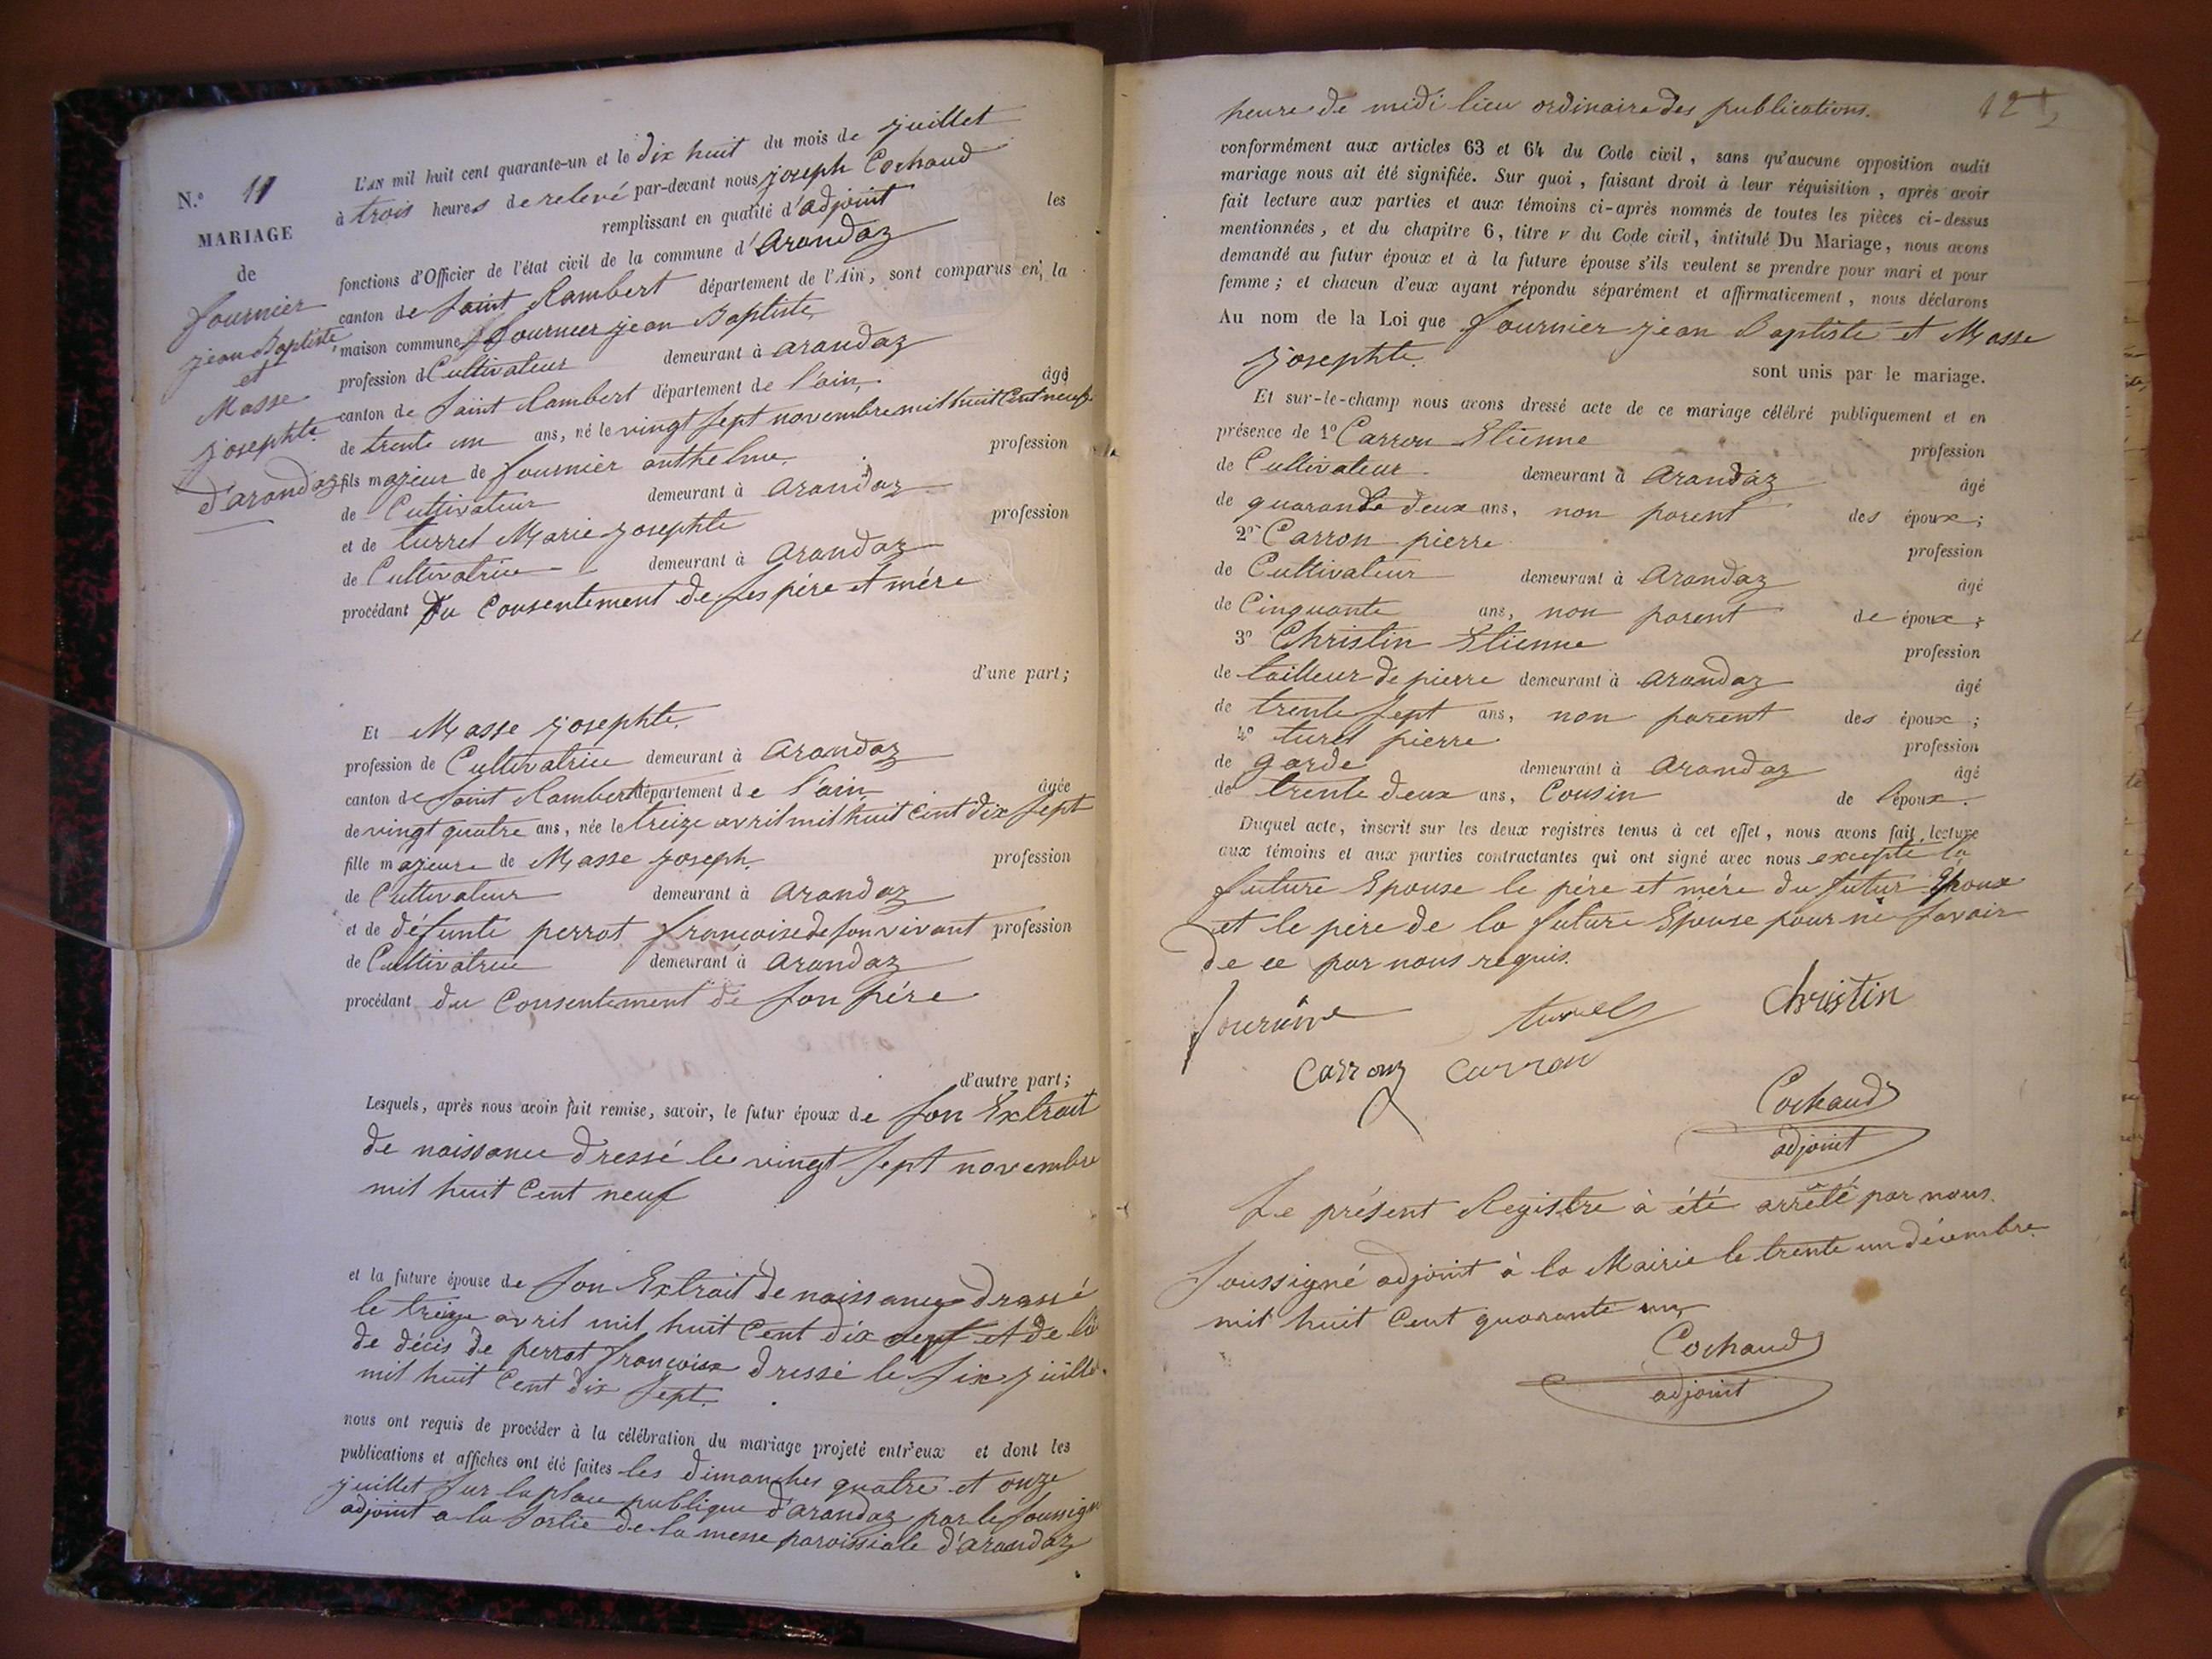 N.º 11
MARIAGE
de
fournier
jean Baptiste
et
Masse
josephte
d'arandaz
L'AN mil huit cent quarante-un et le dix huit du mois de juillet
à trois heures de relevé par-devant nous joseph Cochaud
remplissant en qualité d'adjoint les
fonctions d'Officier de l'état civil de la commune d'arandaz
canton de saint Rambert département de l'Ain, sont comparus en la
maison commune fournier jean Baptiste
profession de Cultivateur demeurant à arandaz
canton de saint Rambert département de l'ain, âgé
de trente un ans, né le vingt sept novembre mil huit Cent neuf
fils majeur de fournier anthelme profession
de Cultivateur demeurant à arandaz
et de turrel Marie josephte profession
de Cultivatrice demeurant à arandaz
procédant Du Consentement de ses père et mère
d'une part;
Et Masse josephte
profession de Cultivatrice demeurant à arandaz
canton de saint Rambert département de l'ain âgée
de vingt quatre ans, née le treize avril mil huit Cent dix sept
fille majeure de Masse joseph profession
de Cultivateur demeurant à arandaz
et de défunte perrot francoise de son vivant profession
de Cultivatrice demeurant à arandaz
procédant du Consentement de son père
d'autre part;
Lesquels, après nous avoir fait remise, savoir, le futur époux de son Extrait
de naissance Dressé le vingt sept novembre
mil huit Cent neuf
et la future épouse de son Extrait de naissance dressé
le treize avril mil huit Cent dix sept et de la
de décis de perrot francoise dressé le six juillet
mil huit Cent dix sept.
nous ont requis de procéder à la célébration du mariage projeté entr'eux et dont les
publications et affiches ont été faites les dimanches quatre et onze
juillet sur la place publique d'arandaz par le soussigné
adjoint a la sortie de la messe paroissiale d'arandaz
12
heure de midi lieu ordinaire des publications.
conformément aux articles 63 et 64 du Code civil, sans qu'aucune opposition audit
mariage nous ait été signifiée. Sur quoi, faisant droit à leur réquisition, après avoir
fait lecture aux parties et aux témoins ci-après nommés de toutes les pièces ci-dessus
mentionnées, et du chapitre 6, titre v du Code civil, intitulé Du Mariage, nous avons
demandé au futur époux et à la future épouse s'ils veulent se prendre pour mari et pour
femme; et chacun d'eux ayant répondu séparément et affirmativement, nous déclarons
Au nom de la Loi que fournier jean Baptiste et Masse
josephte.
sont unis par le mariage.
Et sur-le-champ nous avons dressé acte de ce mariage célébré publiquement et en
présence de 1º Carron Etienne profession
de Cultivateur demeurant à arandaz âgé
de quarante deux ans, non parent des époux;
2º Carron pierre profession
de Cultivateur demeurant à arandaz âgé
de Cinquante ans, non parent de époux;
3º Christin Etienne profession
de tailleur de pierre demeurant à arandaz âgé
de trente sept ans, non parent des époux;
4º turel pierre profession
de garde demeurant à arandaz âgé
de trente deux ans, Cousin de l'époux.
Duquel acte, inscrit sur les deux registres tenus à cet effet, nous avons fait lecture
aux témoins et aux parties contractantes qui ont signé avec nous excepté la
future Epouse le père et mère du futur Epoux
et le père de la future Epouse pour ne savoir
de ce par nous requis.
turrel Christin
Carron Carron
Cochaud
adjoint
Le présent Registre à été arrêté par nous
soussigné adjoint à la Mairie le trente un décembre
mil huit Cent quarante un
Cochaud
adjoint